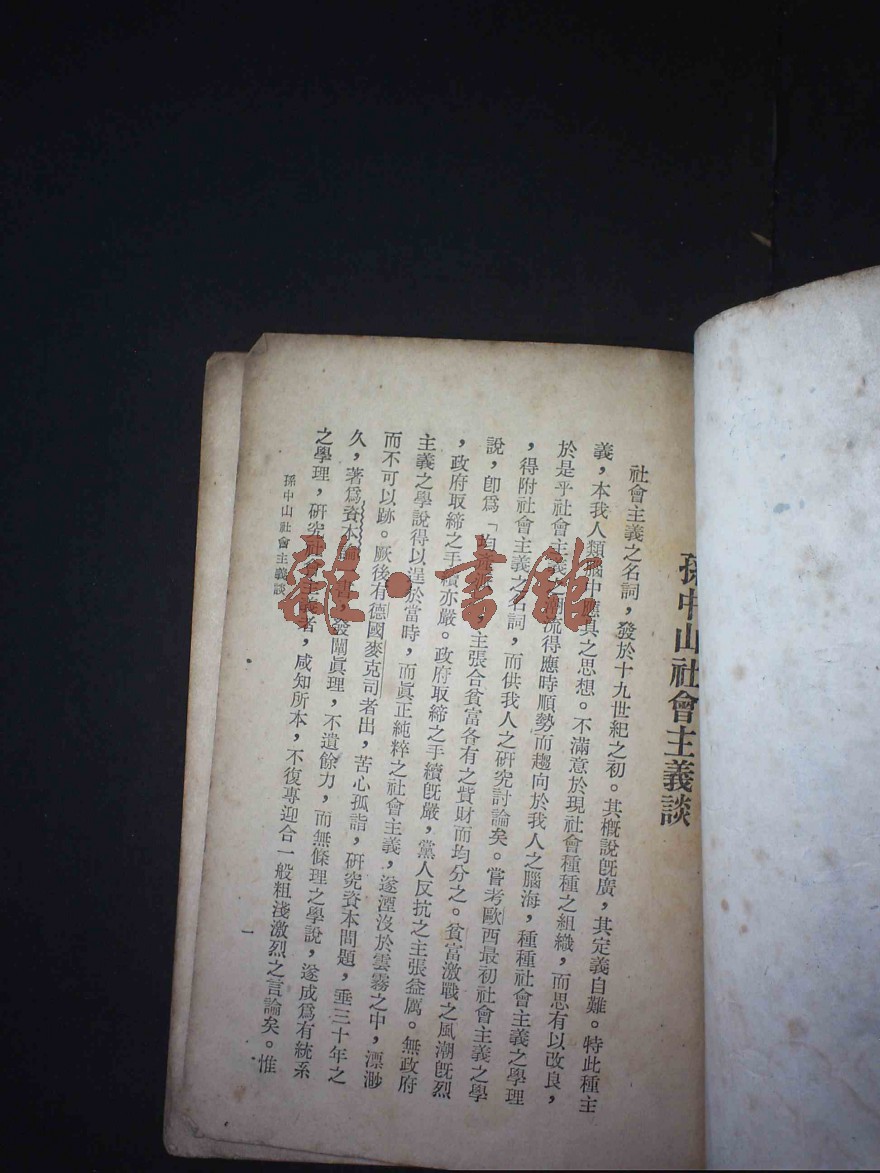 孫中山社會主義談
社會主義之名詞，發於十九世紀之初。其槪說旣廣，其定義自難。特此種主
義，本我人類腦中應具之思想。不滿意於現社會種種之組織，而思有以改良，
於是乎社會主義潮流得應時順勢而趨向於我人之腦海，種種社會主義之學理
，得附社會主義之名詞，而供我人之硏究討論矣。嘗考歐西最初社會主義之學
說，卽爲「均產派」，主張合貧富各有之貲財而均分之。貧富激戰之風潮旣烈
，政府取締之手續亦嚴。政府取締之手續旣嚴，黨人反抗之主張益厲。無政府
主義之學說得以逞於當時，而眞正純粹之社會主義，遂湮沒於雲霧之中，漂渺
而不可以跡。厥後有德國麥克司者出，苦心孤詣，硏究資本問題，垂三十年之
久，著爲資本書，發闡眞理，不遺餘力，而無條理之學說，遂成爲有統系
之學理，硏究社會主義者，咸知所本，不復專迎合一般粗淺激烈之言論矣。惟
孫中山社會主義談
一
雜·書館